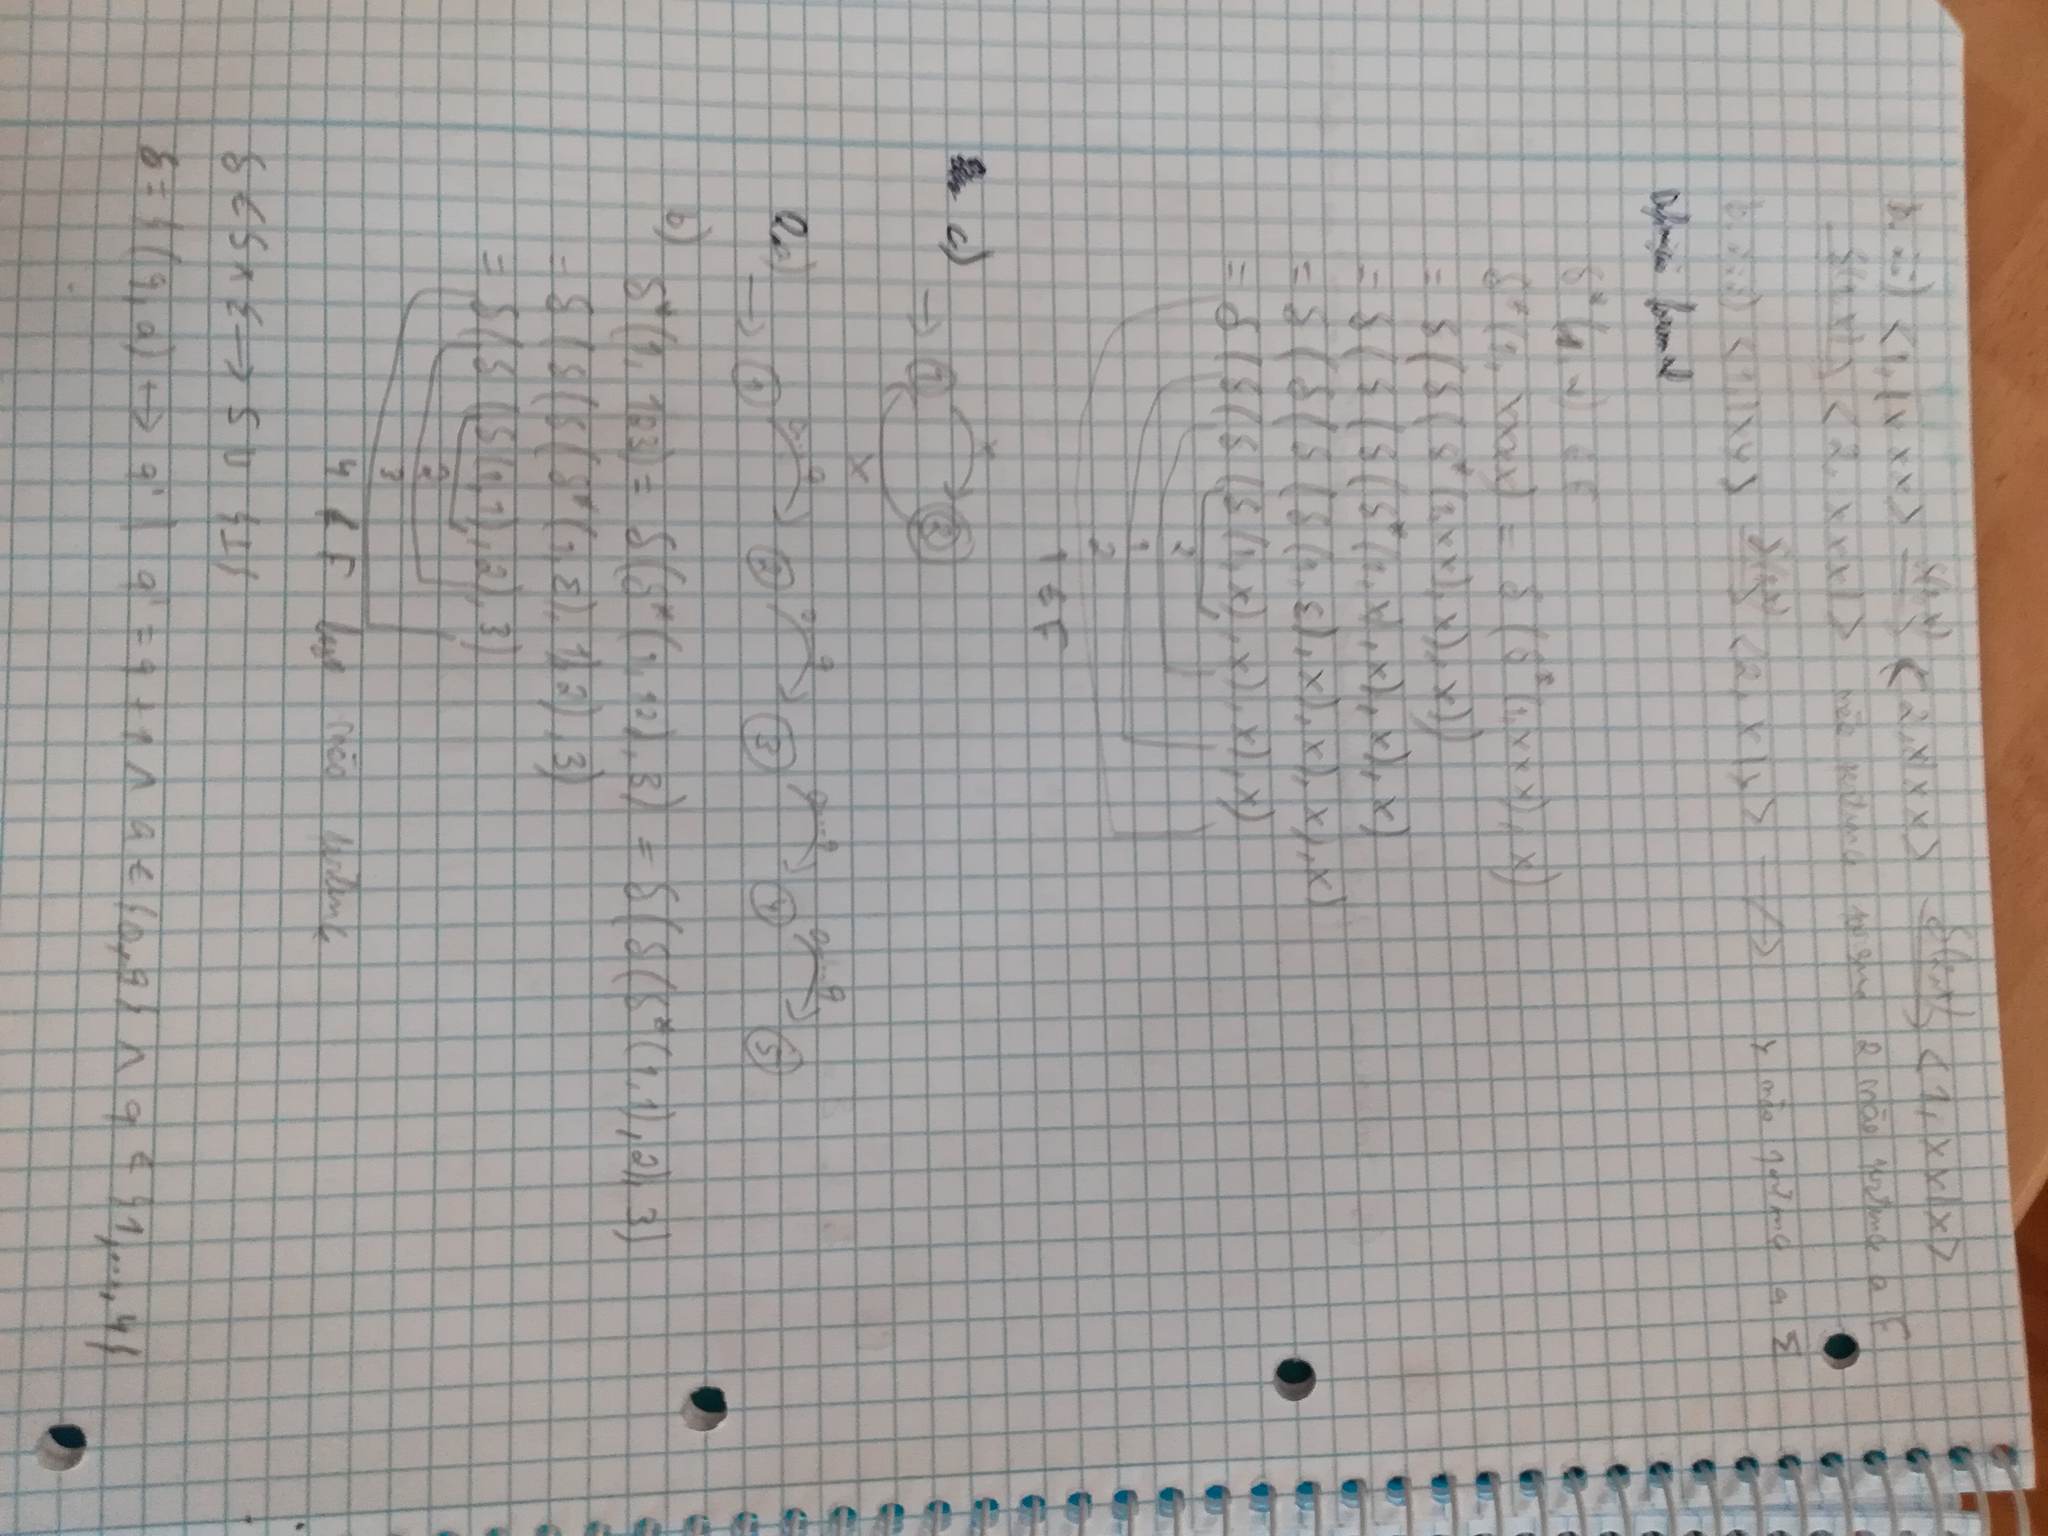 b.ii) <1,|xxx> δ(1,x)→ <2,x|xx> δ(2,x)→ <1,xx|x>
δ(1,x)→ <2,xxx|>   não 2 não pertence a F
b.iii) <1,|xy> δ(1,x)→ <2,x|y> ↛   y não pertence a Σ
Definição formal
δ*(1,w) ∈ F
δ*(1,xxxx) = δ(δ*(1,xxx),x)
= δ(δ(δ*(1,xx),x),x))
= δ(δ(δ(δ*(1,x),x),x),x)
= δ(δ(δ(δ(1,ε),x),x),x),x)
= δ(δ(δ(δ(1,x),x),x),x)
2
1
2
1 ∈ F
c) → 1 x 2
x
2.a) → 1 0..9 2 0..9 3 0...9 4 0...9 5
b) δ*(1,123) = δ(δ*(1,12),3) = δ(δ(δ*(1,1),2),3)
= δ(δ(δ(δ*(1,ε),1),2),3)
= δ(δ(δ(1,1),2),3)
2
3
4 ∉ F logo não pertence
δ ∈ S × Σ → S ∪ {⊥}
δ = {(q,a) ↦ q' | q' = q + 1 ∧ a ∈ {0,9} ∧ q ∈ {1,...,4}